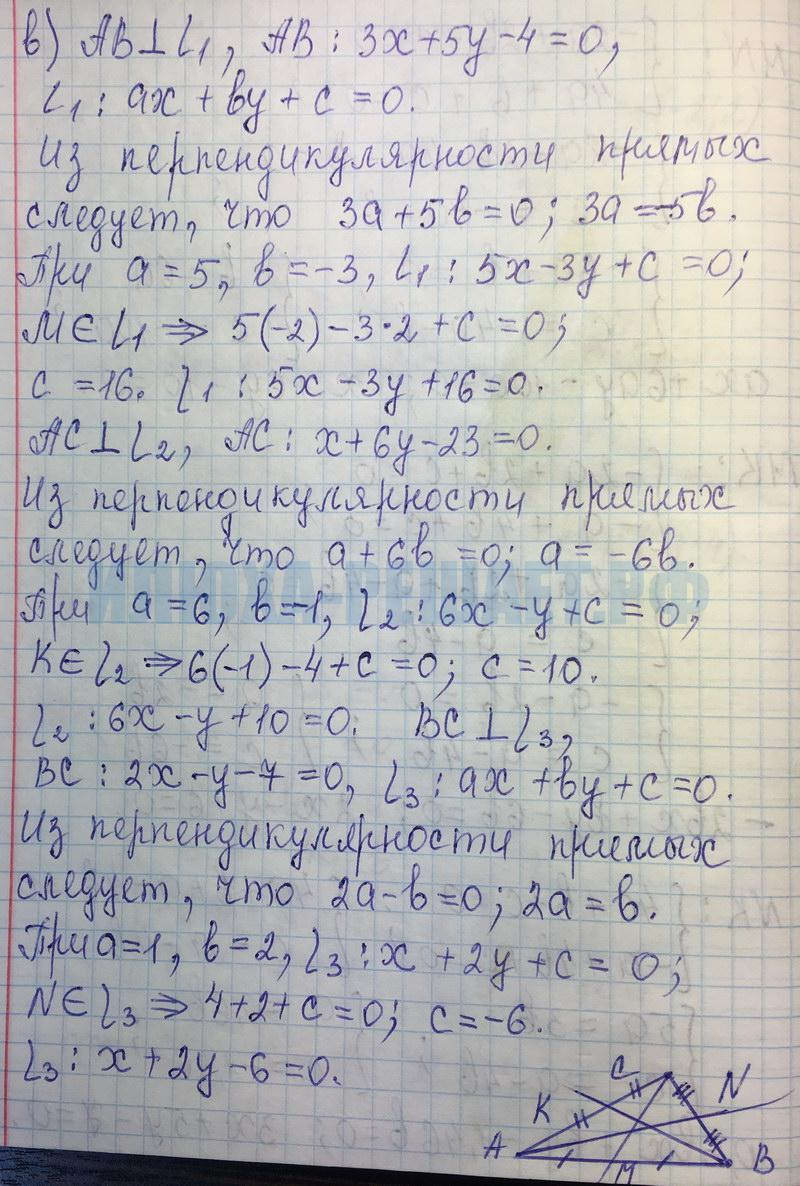 в) AB⊥l₁, AB: 3x+5y-4=0,
l₁: ax+вy+c=0.
Из перпендикулярности прямых
следует, что 3a+5в=0; 3a=-5в.
При a=5, в=-3, l₁: 5x-3y+c=0;
M∈l₁ ⇒ 5(-2)-3·2+c=0;
c=16. l₁: 5x-3y+16=0.
AC⊥l₂, AC: x+6y-23=0.
Из перпендикулярности прямых
следует, что a+6в=0; a=-6в.
При a=6, в=-1, l₂: 6x-y+c=0;
K∈l₂ ⇒ 6(-1)-4+c=0; c=10.
l₂: 6x-y+10=0. BC⊥l₃,
BC: 2x-y-7=0, l₃: ax+вy+c=0.
Из перпендикулярности прямых
следует, что 2a-в=0; 2a=в.
При a=1, в=2, l₃: x+2y+c=0;
N∈l₃ ⇒ 4+2+c=0; c=-6.
l₃: x+2y-6=0.
C
K
N
A
M
B